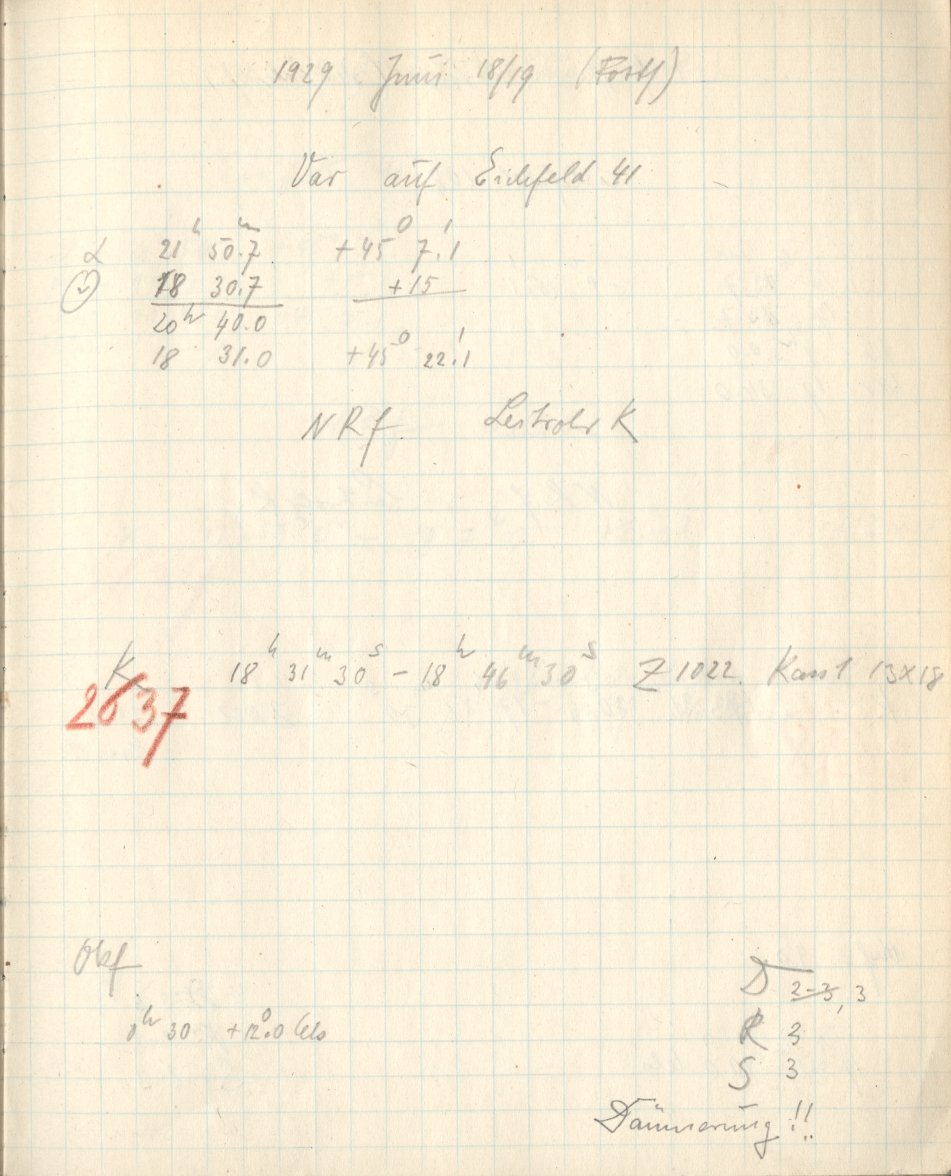 1929 Juni 18/19 (Forts)
Var auf Eichfeld 41
α 21ʰ 50ᵐ.7 +45° 7'.1
18 30.7 +15
20ʰ 40.0
18 31.0 +45° 22'.1
NRf Leitrohr K
K 18ʰ 31ᵐ 30ˢ – 18ʰ 46ᵐ 30ˢ Z 1022. Kas 1 13x18
2637
0ʰ 30 +12°.0 Cels
D 2-3, 3
R 3
S 3
Dämmerung!!